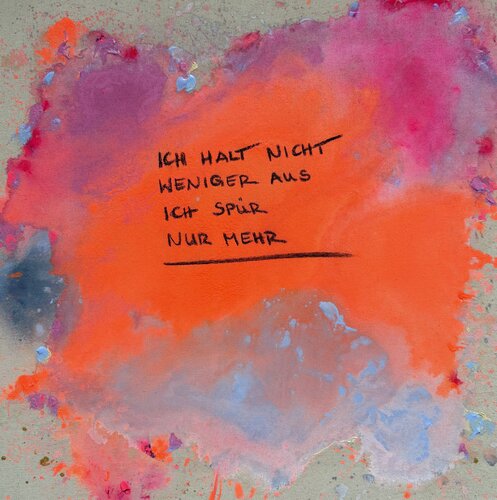 ICH HALT NICHT
WENIGER AUS
ICH SPÜR
NUR MEHR